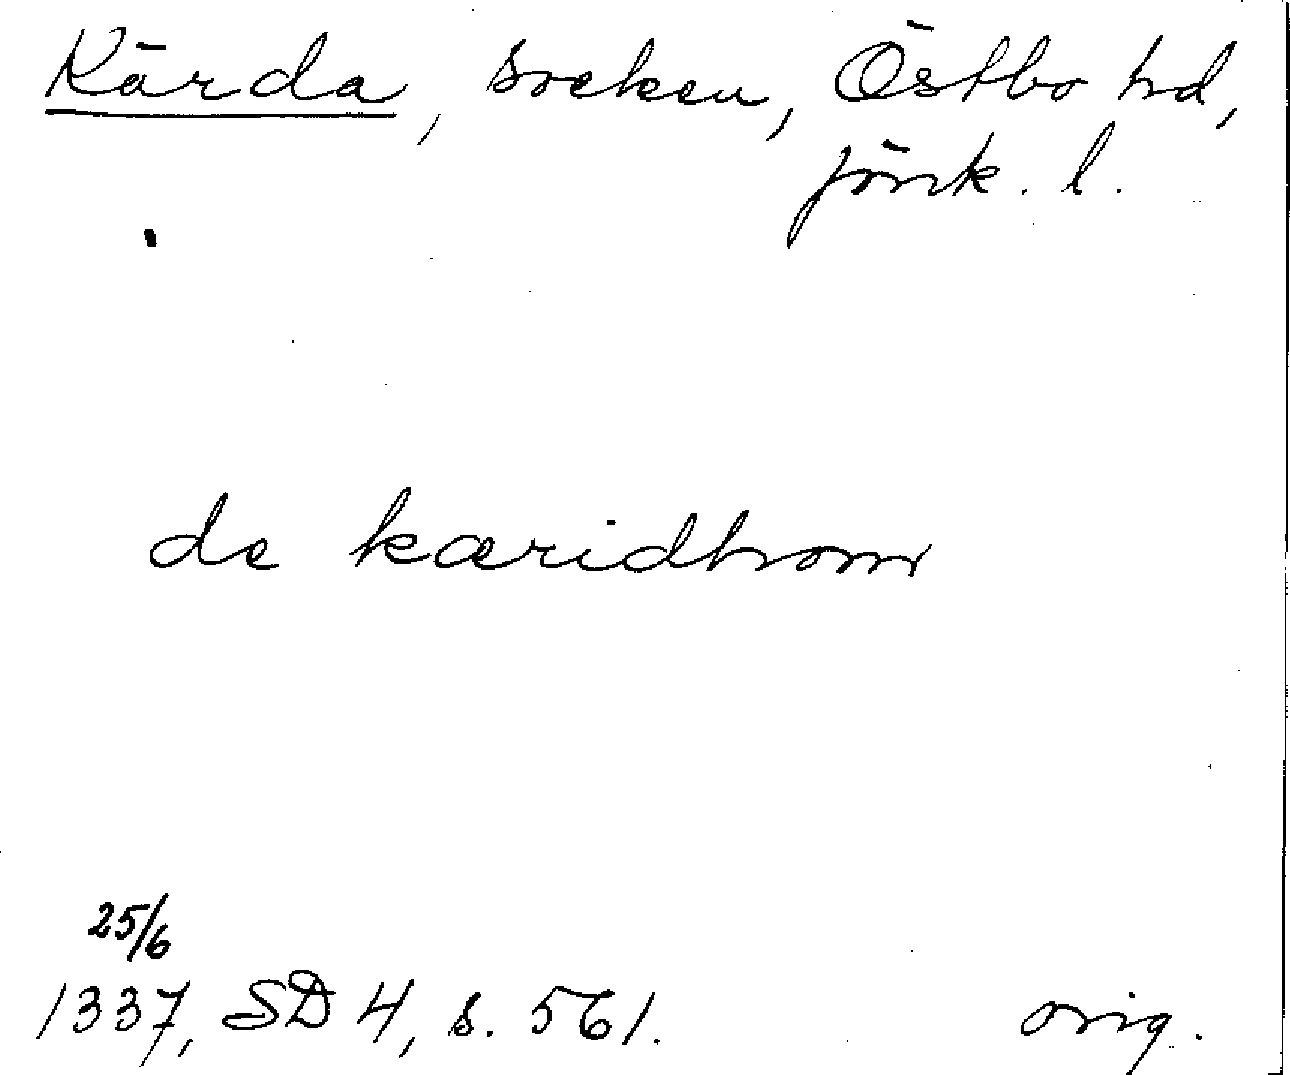 Kärda, socken, Östbo hd,
Jönk. l.
de kæridhom
25/6
1337, SD 4, s. 561. orig.